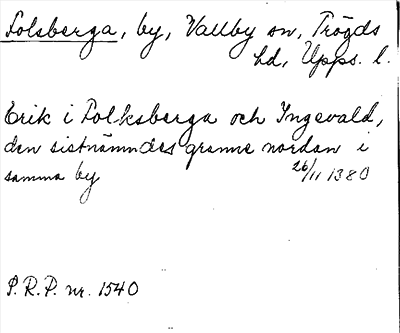 Solsberga, by, Vallby sn, Trögds
hd, Upps. l.
Erik i Solksberga och Ingevald,
den sistnämndes granne nordan i
samma by 26/11 1380
P.R.P. nr. 1540